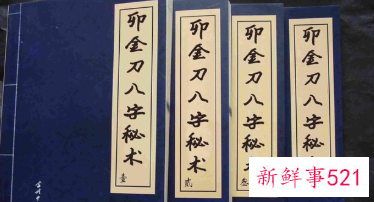 卯金刀八字秘术
壹
卯金刀八字秘术
贰
卯金刀八字秘术
叁
卯金刀八字秘术
新鲜事521